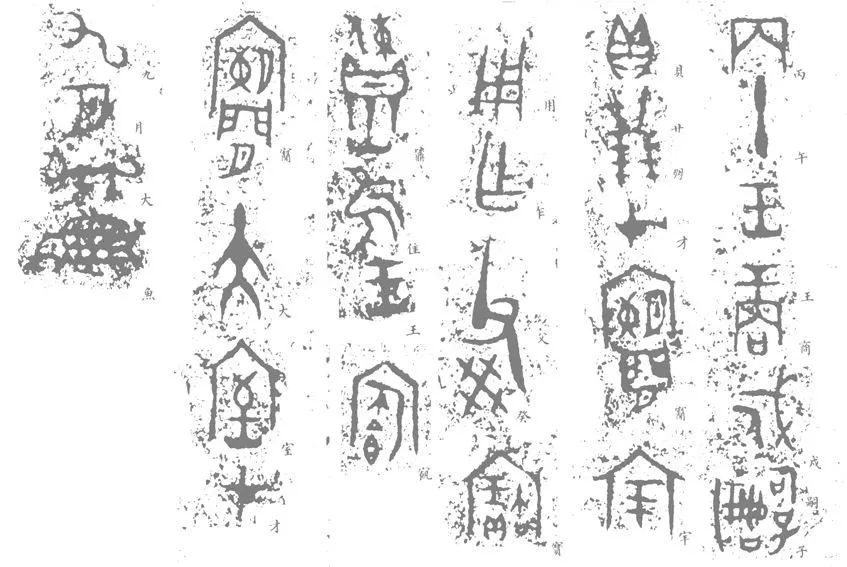 丙午王商戍嗣子
貝廿朋才闌
用作父癸寶
隹王
闌大室才
九月 魚